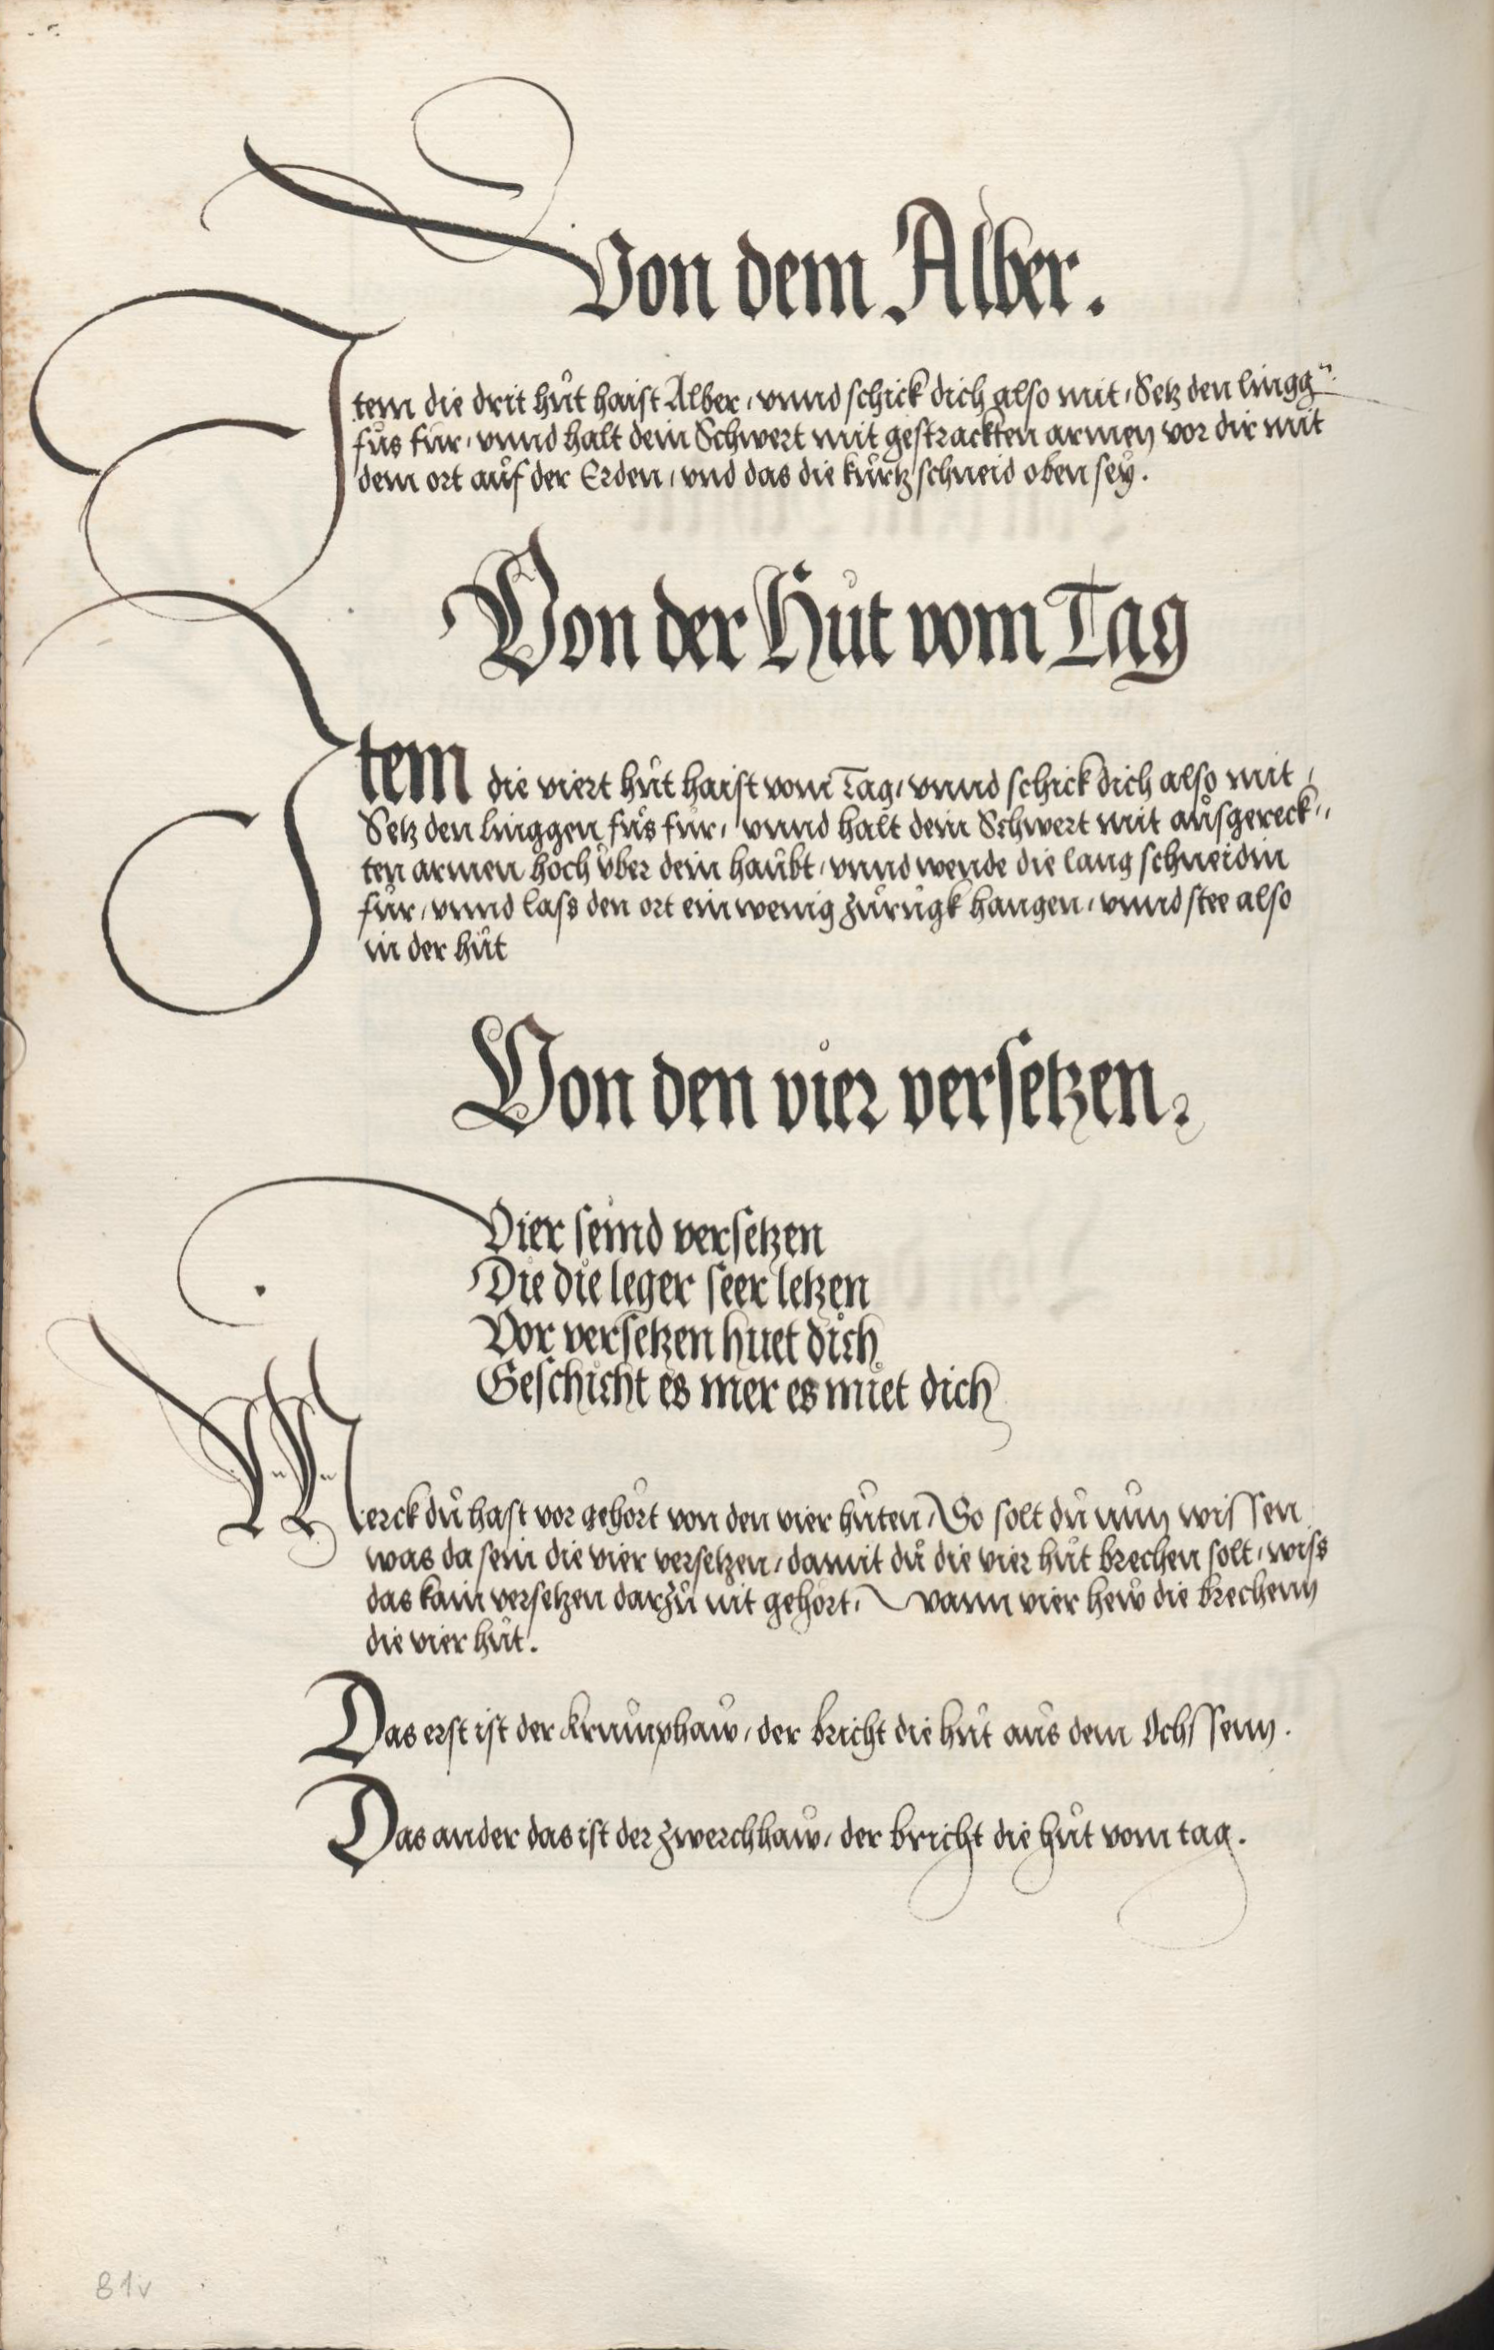 Von dem Alber.
Item die drit hůt haist Alber, vnnd schick dich also mit, Setz den lingg̃
fůs für, vnnd halt dein Schwert mit gestrackten armen vor dir mit
dem ort aůf der Erden, vnd das die kůrtz schneid oben seÿ.
Von der Hůt vom Tag
Item die viert hůt haist vom Tag, vnnd schick dich also mit,
Setz den linggen fůs für, vnnd halt dein Schwert mit aůsgereck„
ten armen hoch vber dein haůbt, vnnd wende die lang schneidin
für, vnnd lass den ort ein wenig zůrůgk hangen, vnnd stee also
in der hůt
Von den vier versetzen.
Vier seind versetzen
Die die leger seer letzen
Vor versetzen huet dich
Geschicht es mer es müet dich
Merck dů hast vor gehört von den vier hůten, So solt dů nun wissen
was da sein die vier versetzen, damit dů die vier hůt brechen solt, wiss
das kain versetzen darzů nit gehört, vann vier hew die brechenn
die vier hůt.
Das erst ist der krůmphaw, der bricht die hůt aůs dem Ochssenn.
Das ander das ist der zwerchhaw, der bricht die hůt vom tag.
81v